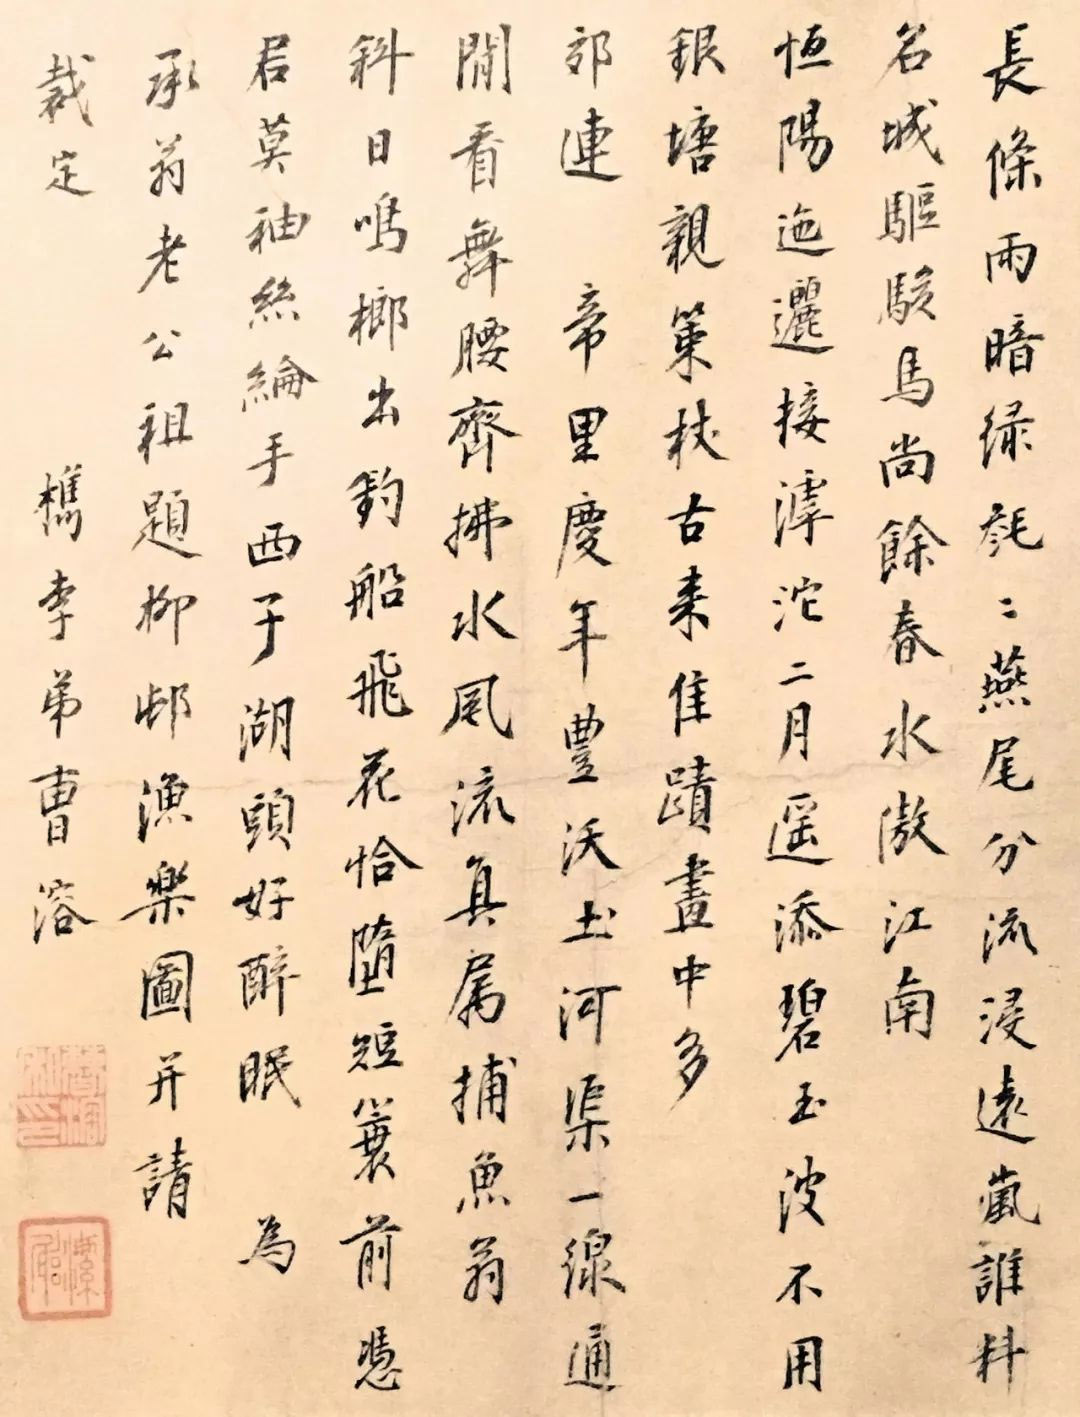 長條雨暗綠毿〻燕尾分流浸遠嵐誰料
名城驅駿馬尚餘春水傲江南
恒陽迤邐接滹沱二月遥添碧玉波不用
銀塘親策杖古来佳蹟畫中多
郊連 帝里慶年豐沃土河渠一線通
閒看舞腰齊拂水風流真属捕魚翁
斜日鳴榔出釣船飛花恰墮短蓑前憑
君莫袖絲綸手西子湖頭好醉眠 為
承翁老公祖題柳邨漁樂圖并請
裁定 檇李弟曹溶
曹溶